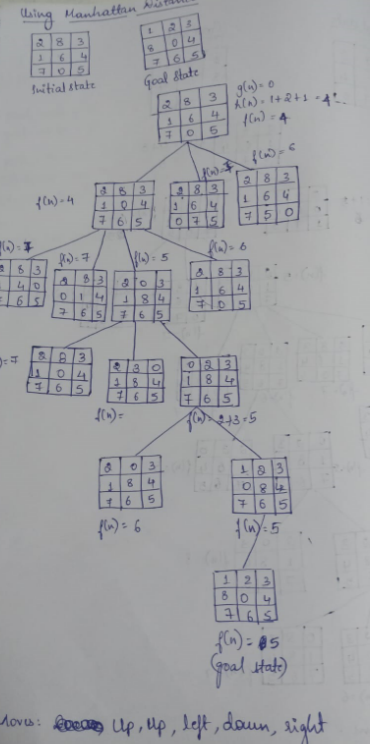 Using Manhattan Distance
2 8 3
1 6 4
7 0 5
Initial state
1 2 3
8 0 4
7 6 5
Goal State
2 8 3
1 6 4
7 0 5
g(n)=0
h(n)=1+2+1=4
f(n)=4
f(n)=4
2 8 3
1 0 4
7 6 5
2 8 3
1 6 4
0 7 5
f(n)=6
2 8 3
1 6 4
7 5 0
f(n)=7
2 8 3
1 4 0
6 5
f(n)=7
2 8 3
0 1 4
7 6 5
f(n)=5
2 0 3
1 8 4
7 6 5
f(n)=6
2 8 3
1 6 4
7 0 5
=7
2 8 3
1 0 4
7 6 5
2 3 0
1 8 4
7 6 5
f(n)=
0 2 3
1 8 4
7 6 5
f(n)=2+3=5
2 0 3
1 8 4
7 6 5
f(n)=6
1 2 3
0 8 4
7 6 5
f(n)=5
1 2 3
8 0 4
7 6 5
f(n)=5
(goal state)
Moves: Up, Up, left, down, right